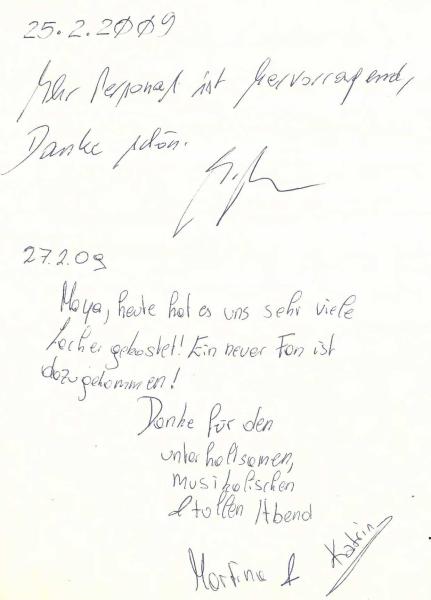 25.2.2009
Ihr Personal ist hervorragend,
Danke schön.
27.2.09
Maya, heute hat es uns sehr viele
Lacher gekostet! Ein neuer Fan ist
dazugekommen!
Danke für den
unterhaltsamen,
musikalischen
& tollen Abend
Martina & Katrin